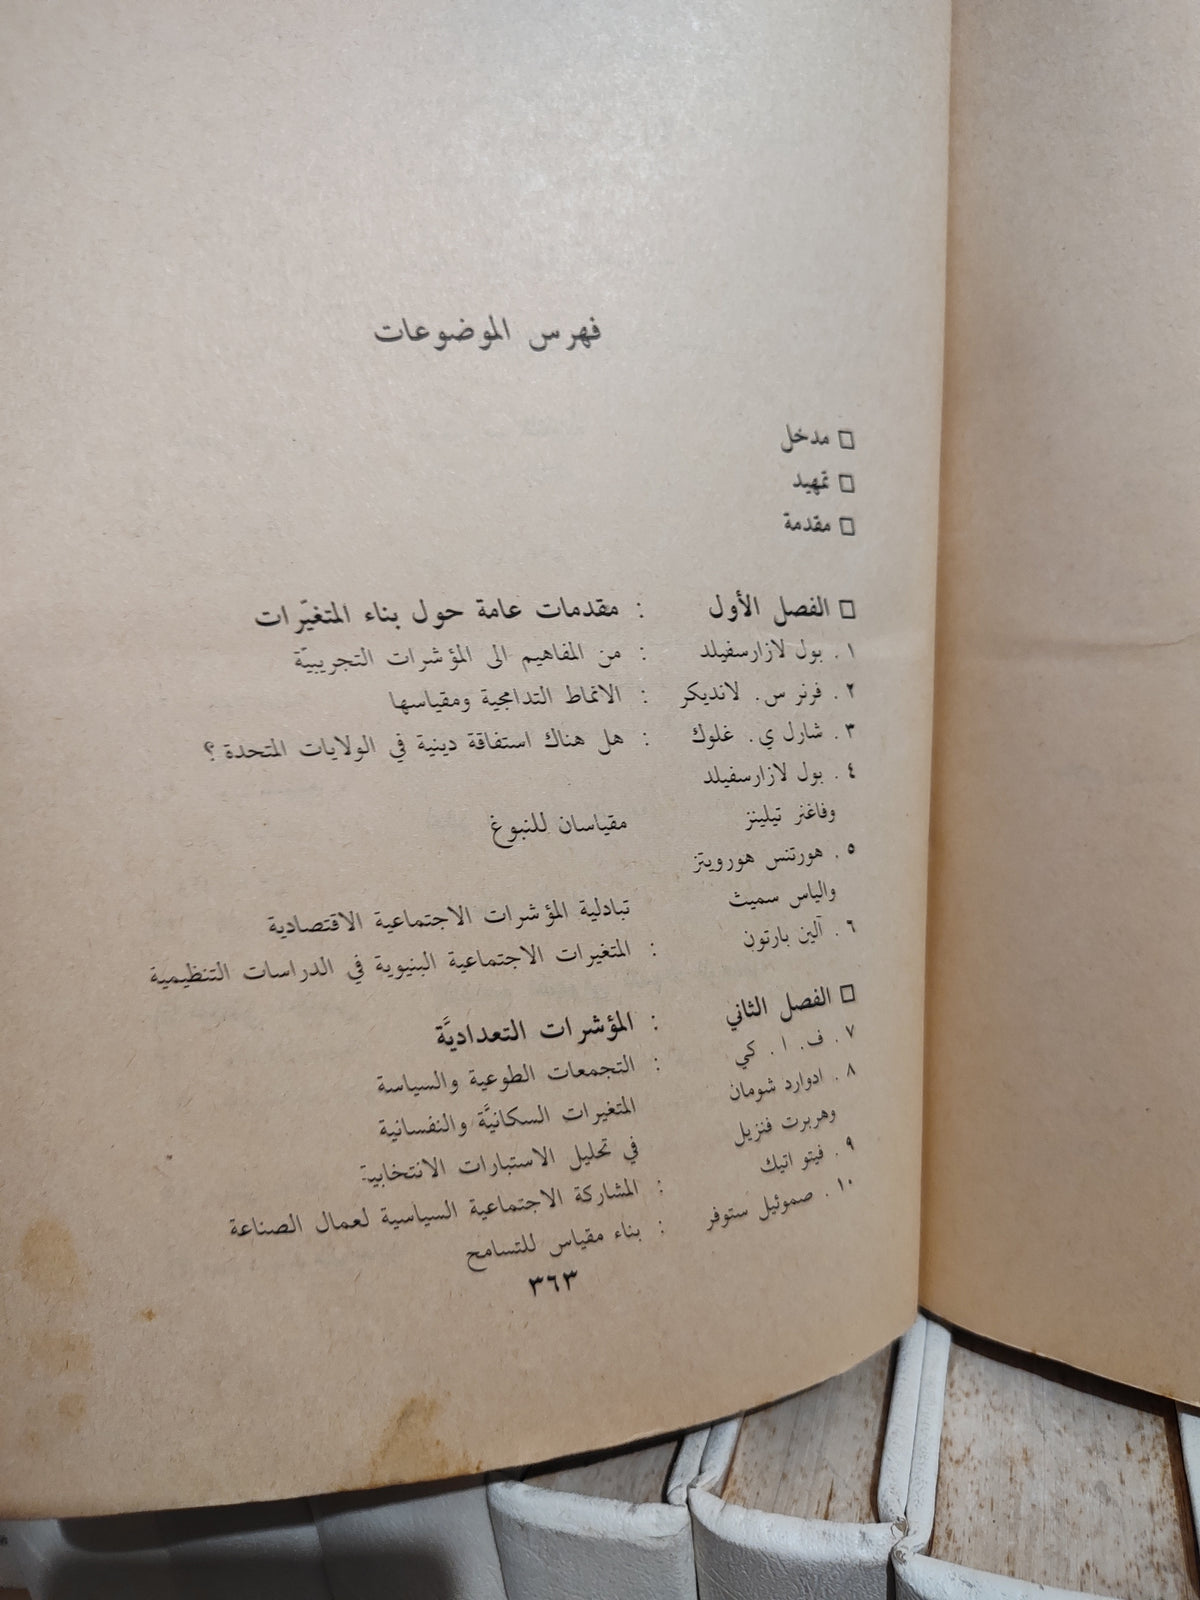 فهرس الموضوعات
□ مدخل
□ تمهيد
□ مقدمة
□ الفصل الأول : مقدمات عامة حول بناء المتغيّرات
١ . بول لازارسفيلد : من المفاهيم الى المؤشرات التجريبيّة
٢ . فرنر س. لانديكر : الانماط التدامجية ومقياسها
٣ . شارل ي. غلوك : هل هناك استفاقة دينية في الولايات المتحدة ؟
٤ . بول لازارسفيلد
وفاغنر تيلينز مقياسان للنبوغ
٥ . هورتنس هورويتز
والياس سميث تبادلية المؤشرات الاجتماعية الاقتصادية
٦ . آلين بارتون : المتغيرات الاجتماعية البنيوية في الدراسات التنظيمية
□ الفصل الثاني : المؤشرات التعداديَّة
٧ . ف. ا. كي : التجمعات الطوعية والسياسة
٨ . ادوارد شومان المتغيرات السكانيَّة والنفسانية
وهربرت فنزيل في تحليل الاستبارات الانتخابية
٩ . فيتو اتيك : المشاركة الاجتماعية السياسية لعمال الصناعة
١٠ . صموئيل ستوفر : بناء مقياس للتسامح
٣٦٣